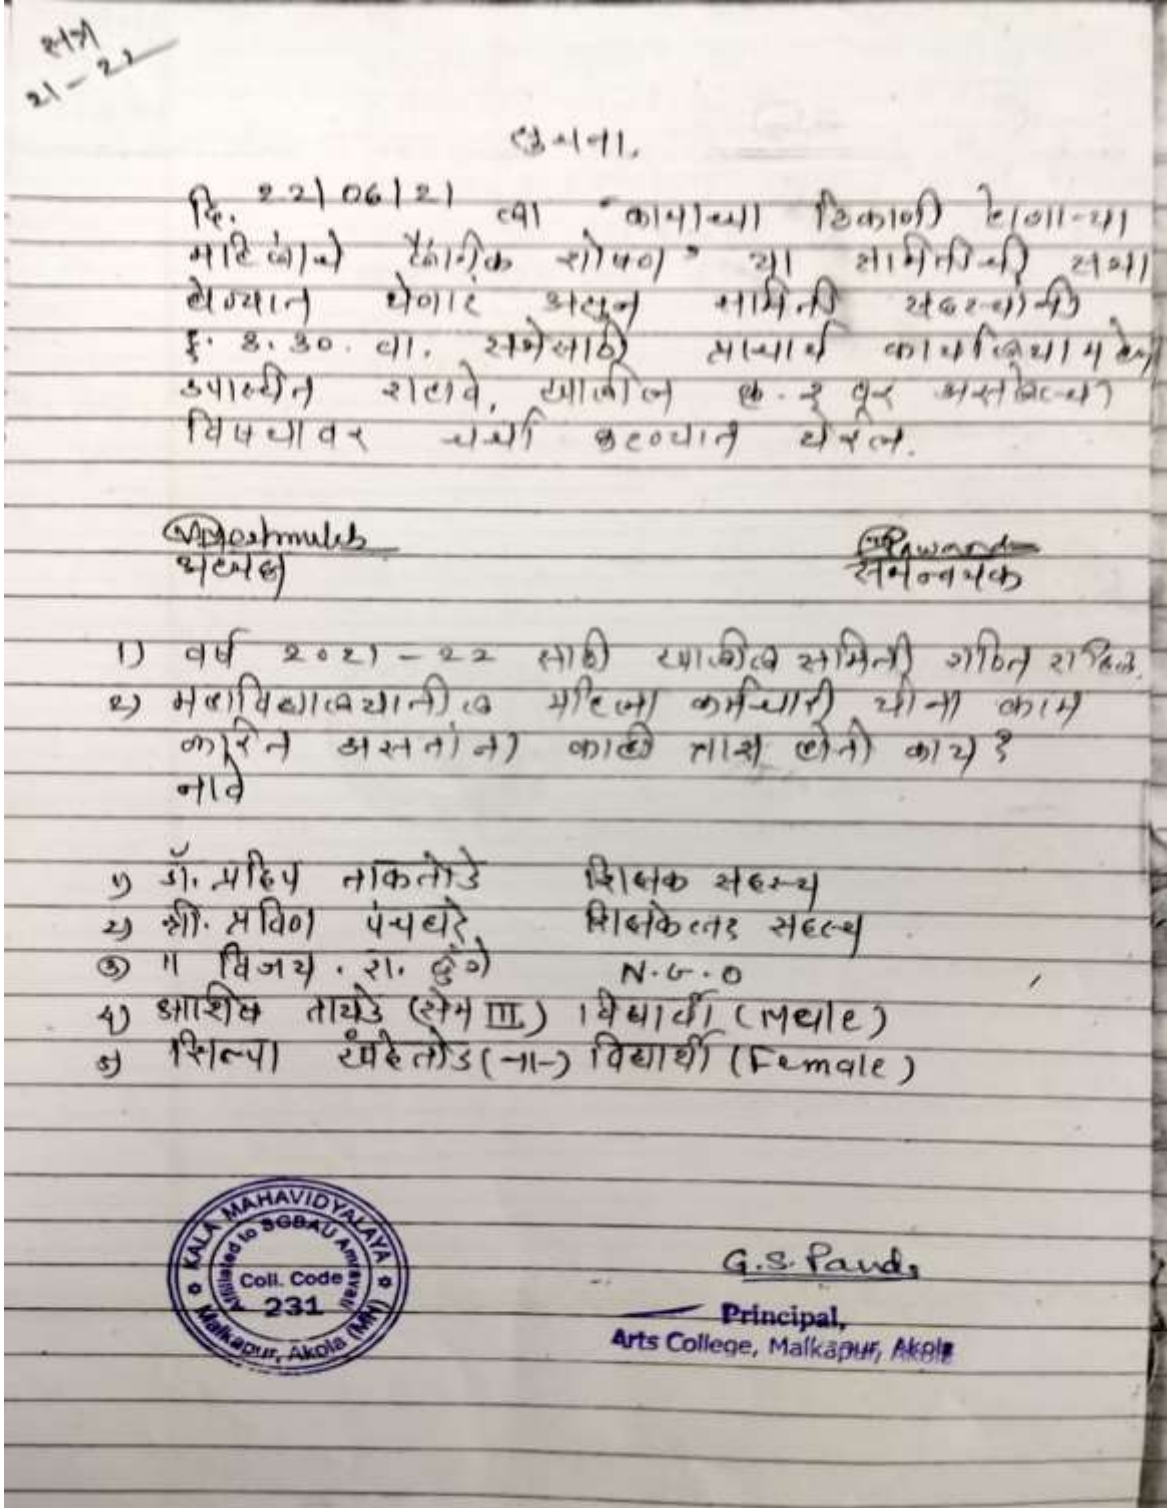 सत्र
21-22
सुचना.
दि. 22/06/21 ला "कामाच्या ठिकाणी होणाऱ्या
महिलांचे लैंगीक शोषण" या समितीची सभा
घेण्यात येणार असुन समिती सदस्यांनी
दु. ३.३०. वा. सभेसाठी प्राचार्य कार्यालयामध्ये
उपास्थीत राहावे, खालील क्र. १ वर असलेल्या
विषयावर चर्चा करण्यात येईल.
Deshmukh
अध्यक्ष
समन्वयक
1) वर्ष 2021-22 साठी खालील समिती गठित राहिल.
२) महाविद्यालयातील महिला कर्मचारी यांना काम
करित असतांना काही त्रास होतो काय?
नावे
१) डॉ. प्रदिप ताकतोडे शिक्षक सदस्य
२) श्री. प्रविण पंचघरे शिक्षकेत्तर सदस्य
३) " विजय . रा. दुंगे N.G.O
४) आशिष तायडे (सेम III) विद्यार्थी (Male)
५) शिल्पा (-॥-) विद्यार्थी (Female)
KALA MAHAVIDYALAYA
Affiliated to SGBAU Amravati
Coll. Code
231
Malkapur, Akola (MH)
G.S. Pande
Principal,
Arts College, Malkapur, Akola